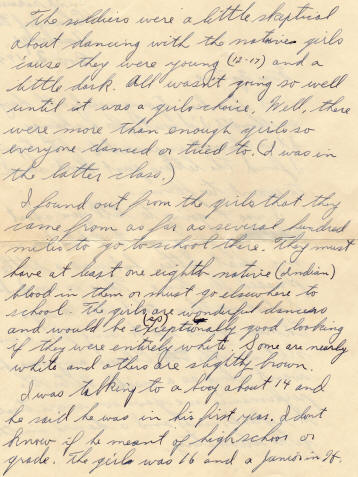 The soldiers were a little skeptical
about dancing with the native girls
'cause they were young (12-17) and a
little dark. All wasn't going so well
until it was a girls choice. Well, there
were more than enough girls so
everyone danced or tried to. (I was in
the latter class.)
I found out from the girls that they
came from as far as several hundred
miles to go to school there. They must
have at least one eighth native (Indian)
blood in them or must go elsewhere to
school. The girls are wonderful dancers
and would be exceptionally good looking
if they were entirely white. Some are nearly
white and others are slightly brown.
I was talking to a boy about 14 and
he said he was in his first year. I don't
know if he meant of high school or
grade. The girls was 16 and a Junior in